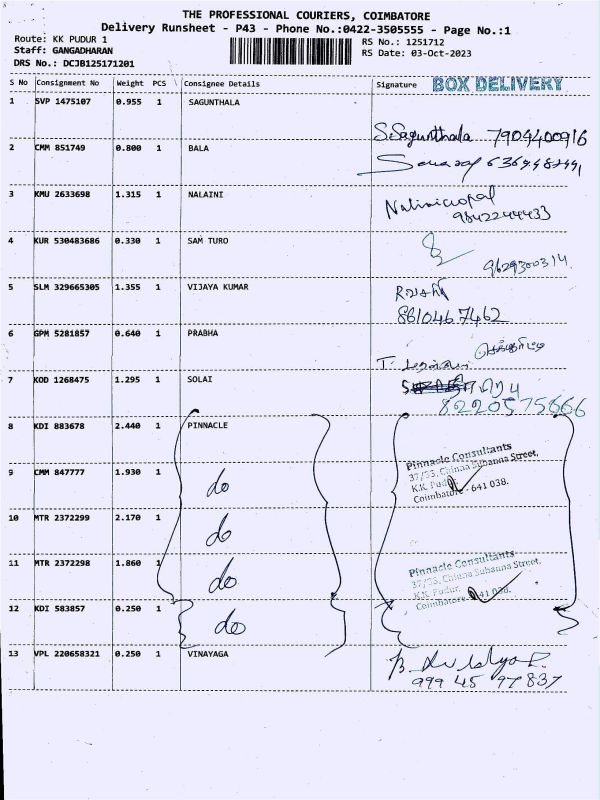 THE PROFESSIONAL COURIERS, COIMBATORE
Delivery Runsheet - P43 - Phone No.:0422-3505555 - Page No.:1
Route: KK PUDUR 1 RS No.: 1251712
Staff: GANGADHARAN RS Date: 03-Oct-2023
DRS No.: DCJB125171201
S No Consignment No Weight PCS Consignee Details Signature BOX DELIVERY
1 SVP 1475107 0.955 1 SAGUNTHALA
S.Sagunthala 7904400916
2 CMM 851749 0.800 1 BALA
3 KMU 2633698 1.315 1 NALAINI
9842244433
4 KUR 530483686 0.330 1 SAM TURO
9629300314
5 SLM 329665305 1.355 1 VIJAYA KUMAR
8610467462
6 GPM 5281857 0.640 1 PRABHA
7 KOD 1268475 1.295 1 SOLAI
8220575666
8 KDI 883678 2.440 1 PINNACLE
Pinnacle Consultants
37/55, Chinna Subanna Street,
K.K. Pudur,
Coimbatore - 641 038.
9 CMM 847777 1.930 1 do
10 MTR 2372299 2.170 1 do
11 MTR 2372298 1.860 1 do
Pinnacle Consultants
37/55, Chinna Subanna Street,
K.K. Pudur,
Coimbatore - 641 038.
12 KDI 583857 0.250 1 do
13 VPL 220658321 0.250 1 VINAYAGA
999 45 97837